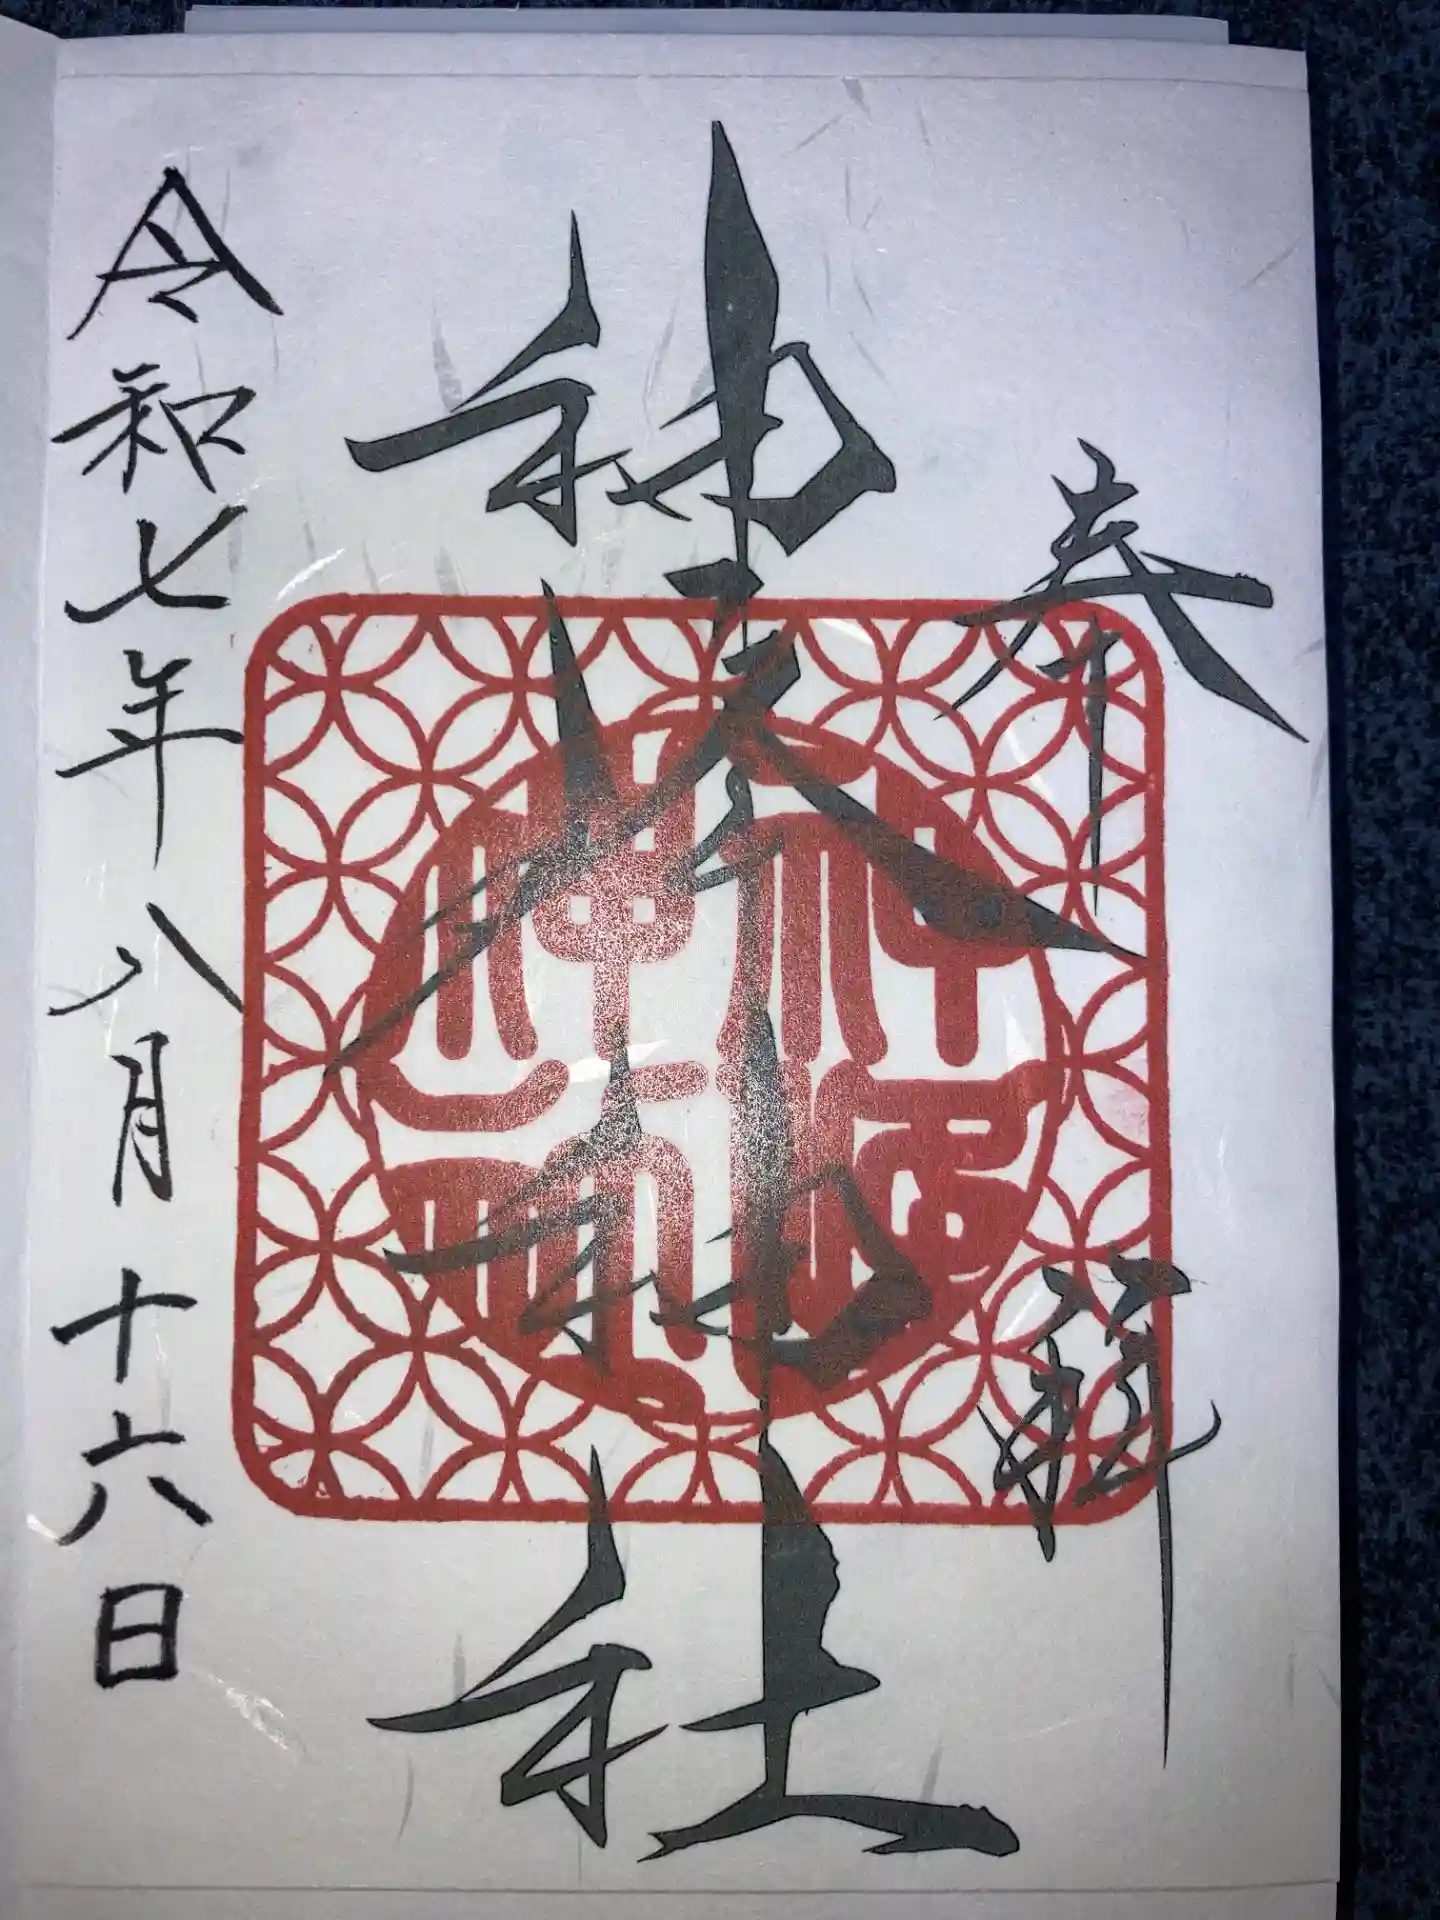 奉拝
神峰神社
令和七年八月十六日